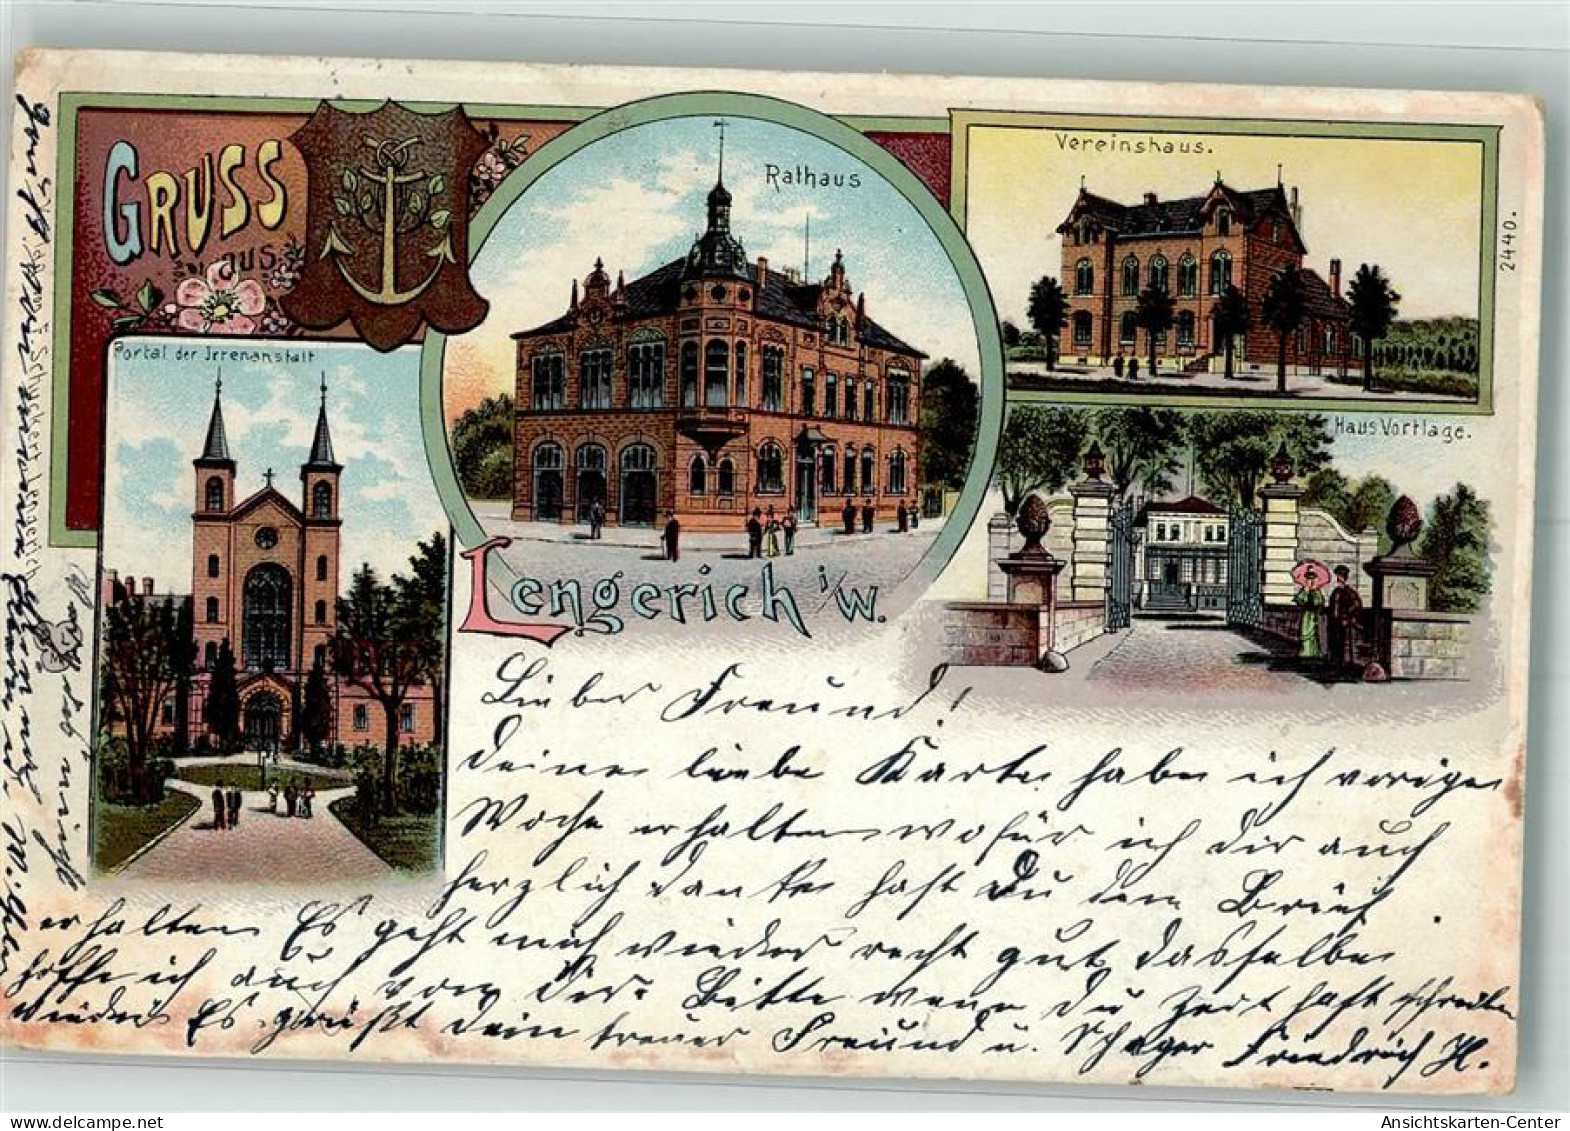 GRUSS
aus
Rathaus
Vereinshaus.
2440.
Portal der Irrenanstalt
Haus Vortlage.
Lengerich i/W.
Lieber Freund!
Deine liebe Karte habe ich vorige
Woche erhalten wofür ich dir auch
herzlich danke hast Du den Brief
erhalten Es geht mich wieder recht gut dasselbe
hoffe ich auch von dir. Bitte wenn du Zeit hast schreibe
wieder Es grüßt dein treuer Freund u. Schwager Friedrich H.
Lengerich
delcampe.net
Ansichtskarten-Center